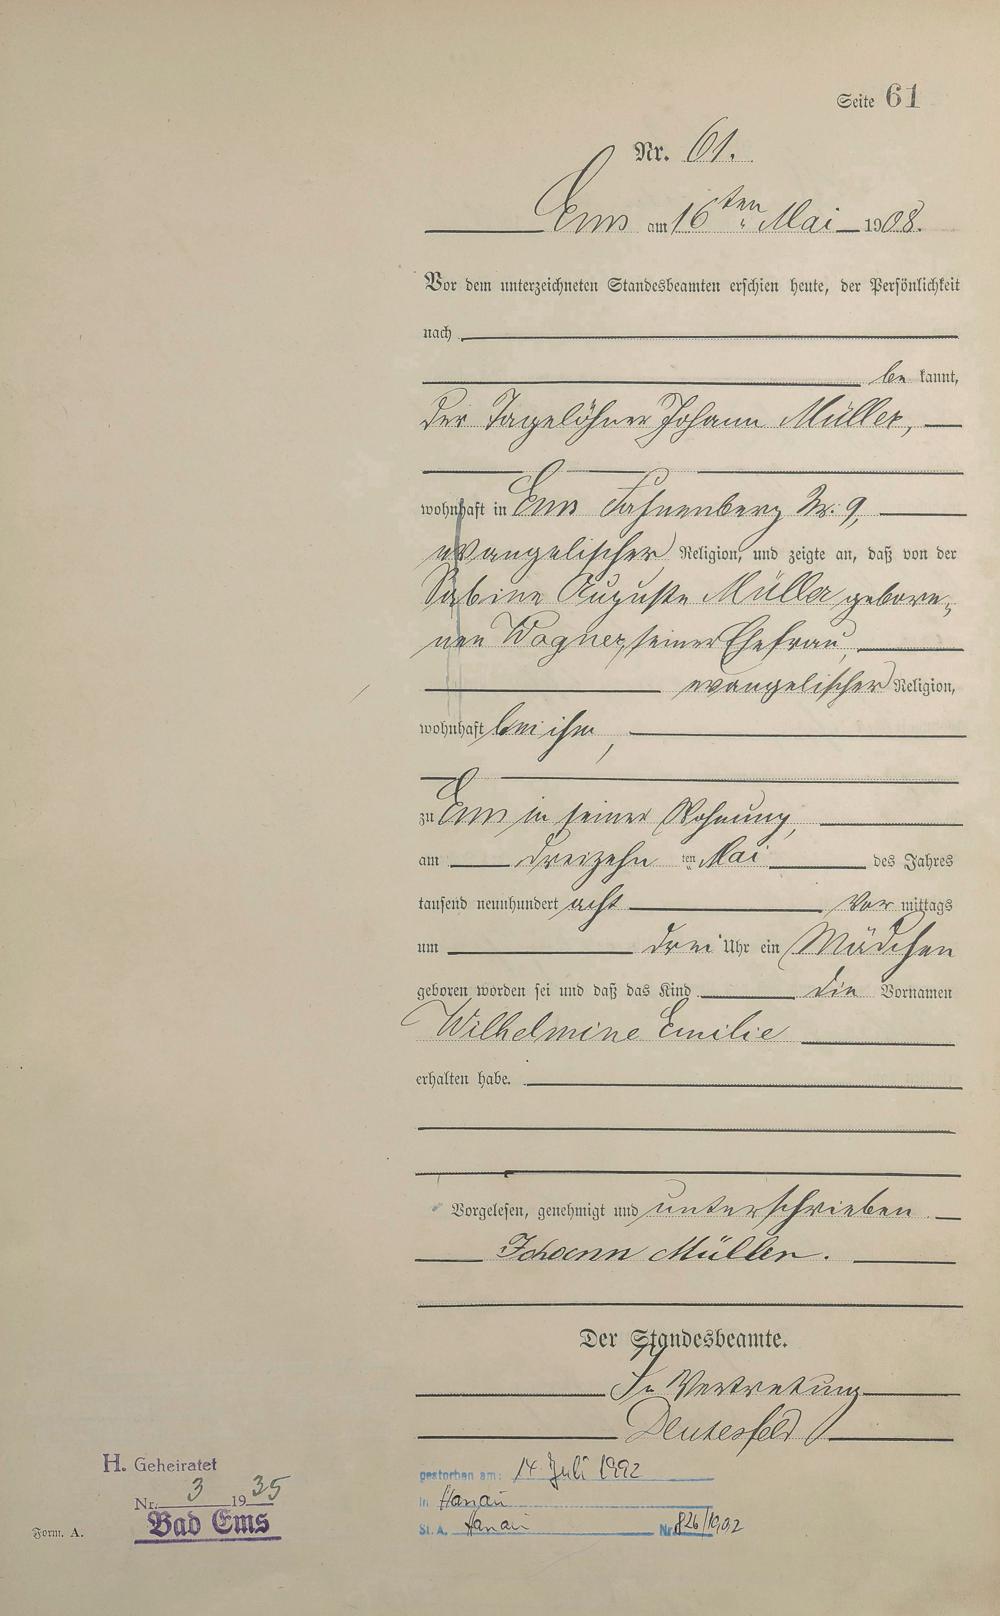 Seite 61
Nr. 61.
Ems am 16ten Mai 1908.
Vor dem unterzeichneten Standesbeamten erschien heute, der Persönlichkeit
nach
be kannt,
der Tagelöhner Johann Müller,
wohnhaft in Ems Fahnenberg Nr. 9,
evangelischer Religion, und zeigte an, daß von der
Sabine Auguste Müller gebore-
nen Wagner, seiner Ehefrau,
evangelischer Religion,
wohnhaft bei ihm,
zu Ems in seiner Wohnung,
am dreizehn ten Mai des Jahres
tausend neunhundert acht Vor mittags
um drei Uhr ein Mädchen
geboren worden sei und daß das Kind die Vornamen
Wilhelmine Emilie
erhalten habe.
Vorgelesen, genehmigt und unterschrieben
Johann Müller.
Der Standesbeamte.
In Vertretung
H. Geheiratet
Nr. 3 1935
Bad Ems
gestorben am: 14. Juli 1992
in Hanau
St. A. Hanau Nr. 826/1992
Form. A.